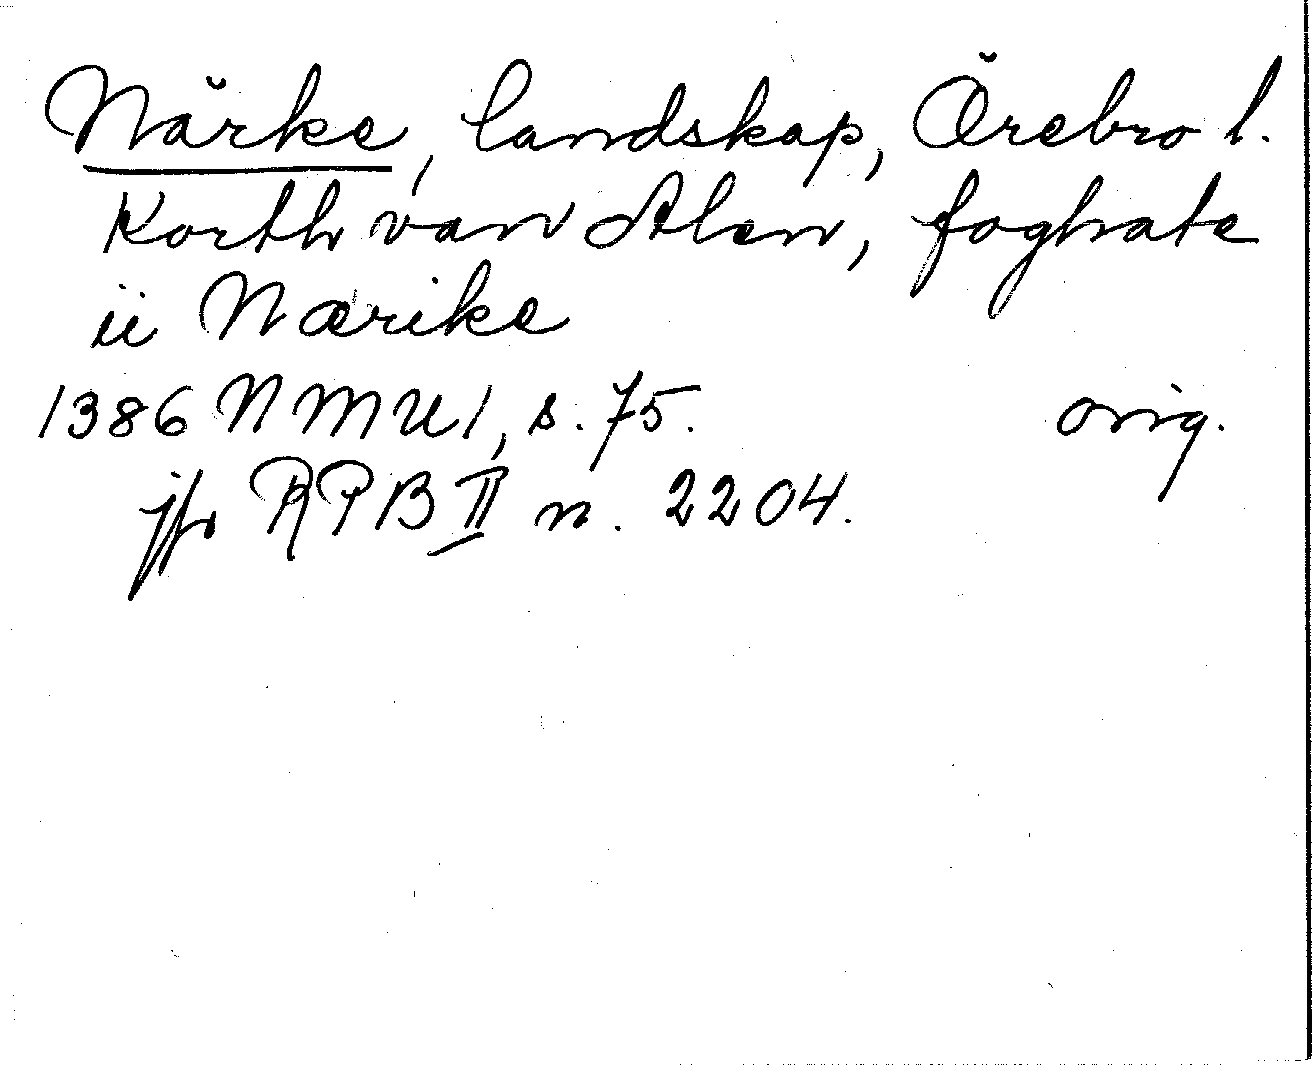 Närke, landskap, Örebro l.
Korth van Alen, foghate
ii Nærike
1386 NMU1, s. 75. orig.
jfr RPB II n. 2204.